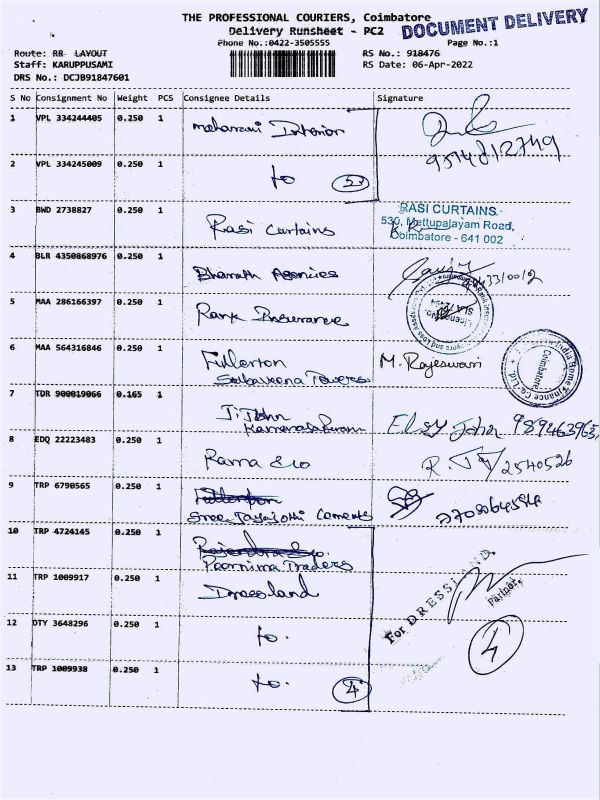 THE PROFESSIONAL COURIERS, Coimbatore
DOCUMENT DELIVERY
Delivery Runsheet - PC2
Phone No.:0422-3505555
Page No.:1
Route: RR LAYOUT
RS No.: 918476
Staff: KARUPPUSAMI
RS Date: 06-Apr-2022
DRS No.: DCJB91847601
S No Consignment No Weight PCS Consignee Details Signature
1 VPL 334244405 0.250 1 Maharani Interior
2 VPL 334245009 0.250 1 to
3 BWD 2738827 0.250 1 Rasi Curtains
RASI CURTAINS
530, Mettupalayam Road,
Coimbatore - 641 002
4 BLR 4350868976 0.250 1 Bharath Agencies
5 MAA 286166397 0.250 1 Rank Insurance
6 MAA 564316846 0.250 1 Fullerton M. Rajeswari
Towers
India Home Finance Co. Ltd.
Coimbatore
7 TDR 900019066 0.165 1 John
Elsy John
8 EDQ 22223483 0.250 1 Rama & Co
2540526
9 TRP 6790565 0.250 1 Fullerton
Sree Jayajothi Cements
10 TRP 4724145 0.250 1
Poornima Traders
11 TRP 1009917 0.250 1 Dressland
For DRESSLAND.
Partner.
12 DTY 3648296 0.250 1 to.
4
13 TRP 1009938 0.250 1 to. 4